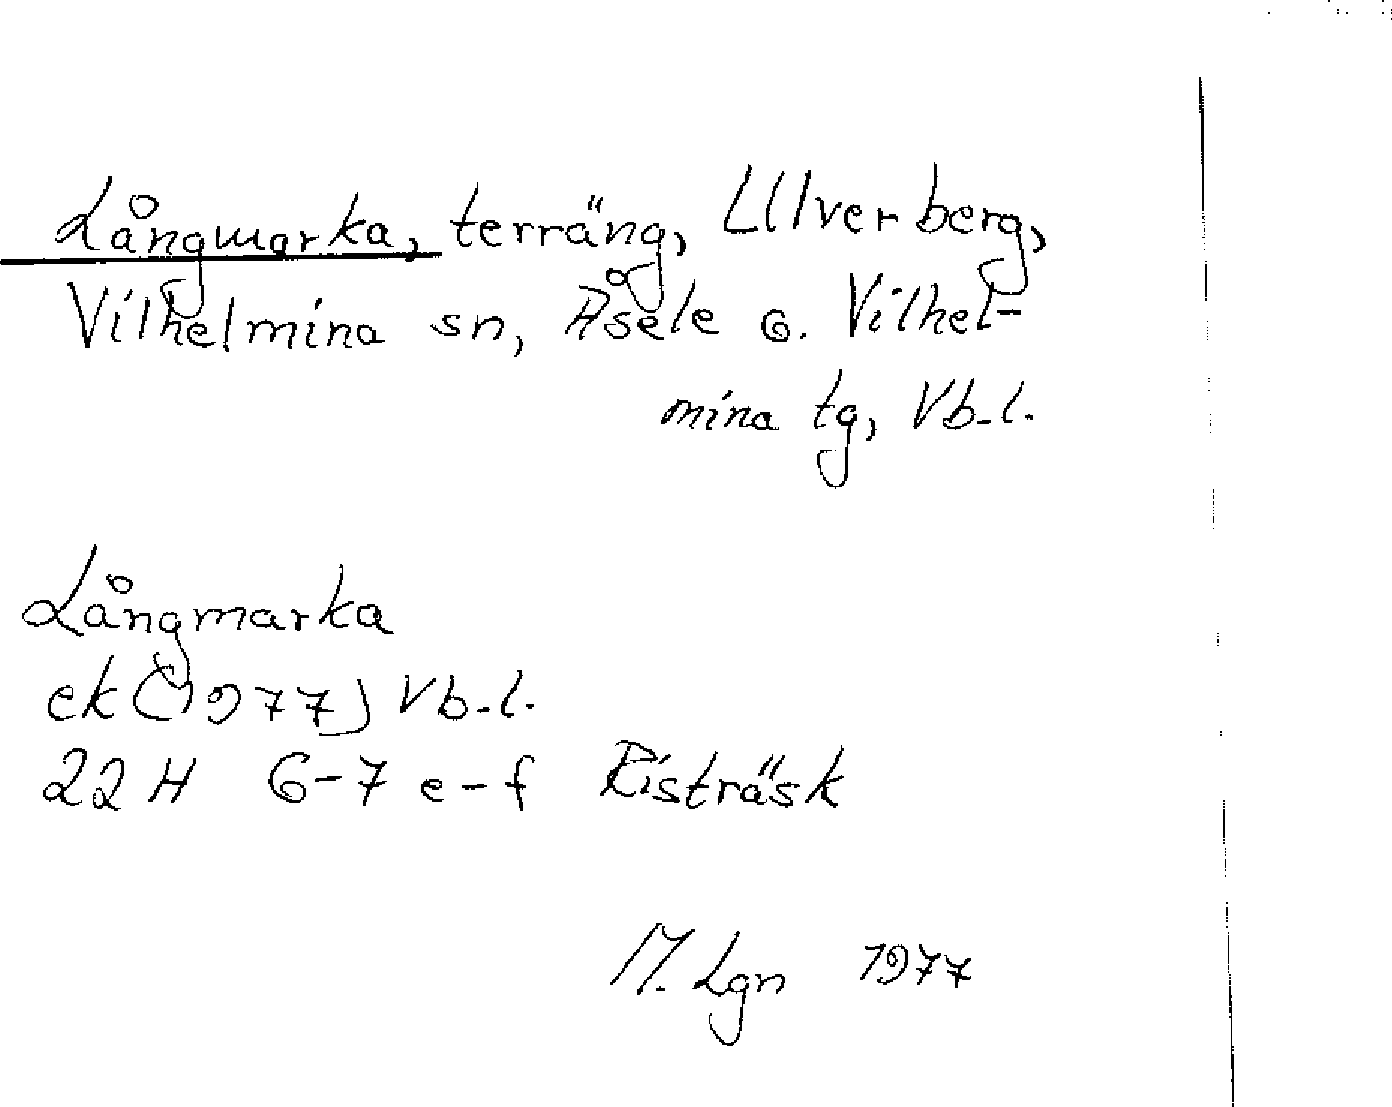 Långmarka, terräng, Ulverberg,
Vilhelmina sn, Åsele o. Vilhel-
mina tg, Vb.l.
Långmarka
ek (1977) Vb.l.
22 H 6-7 e-f Risträsk
M. Lgn 1977